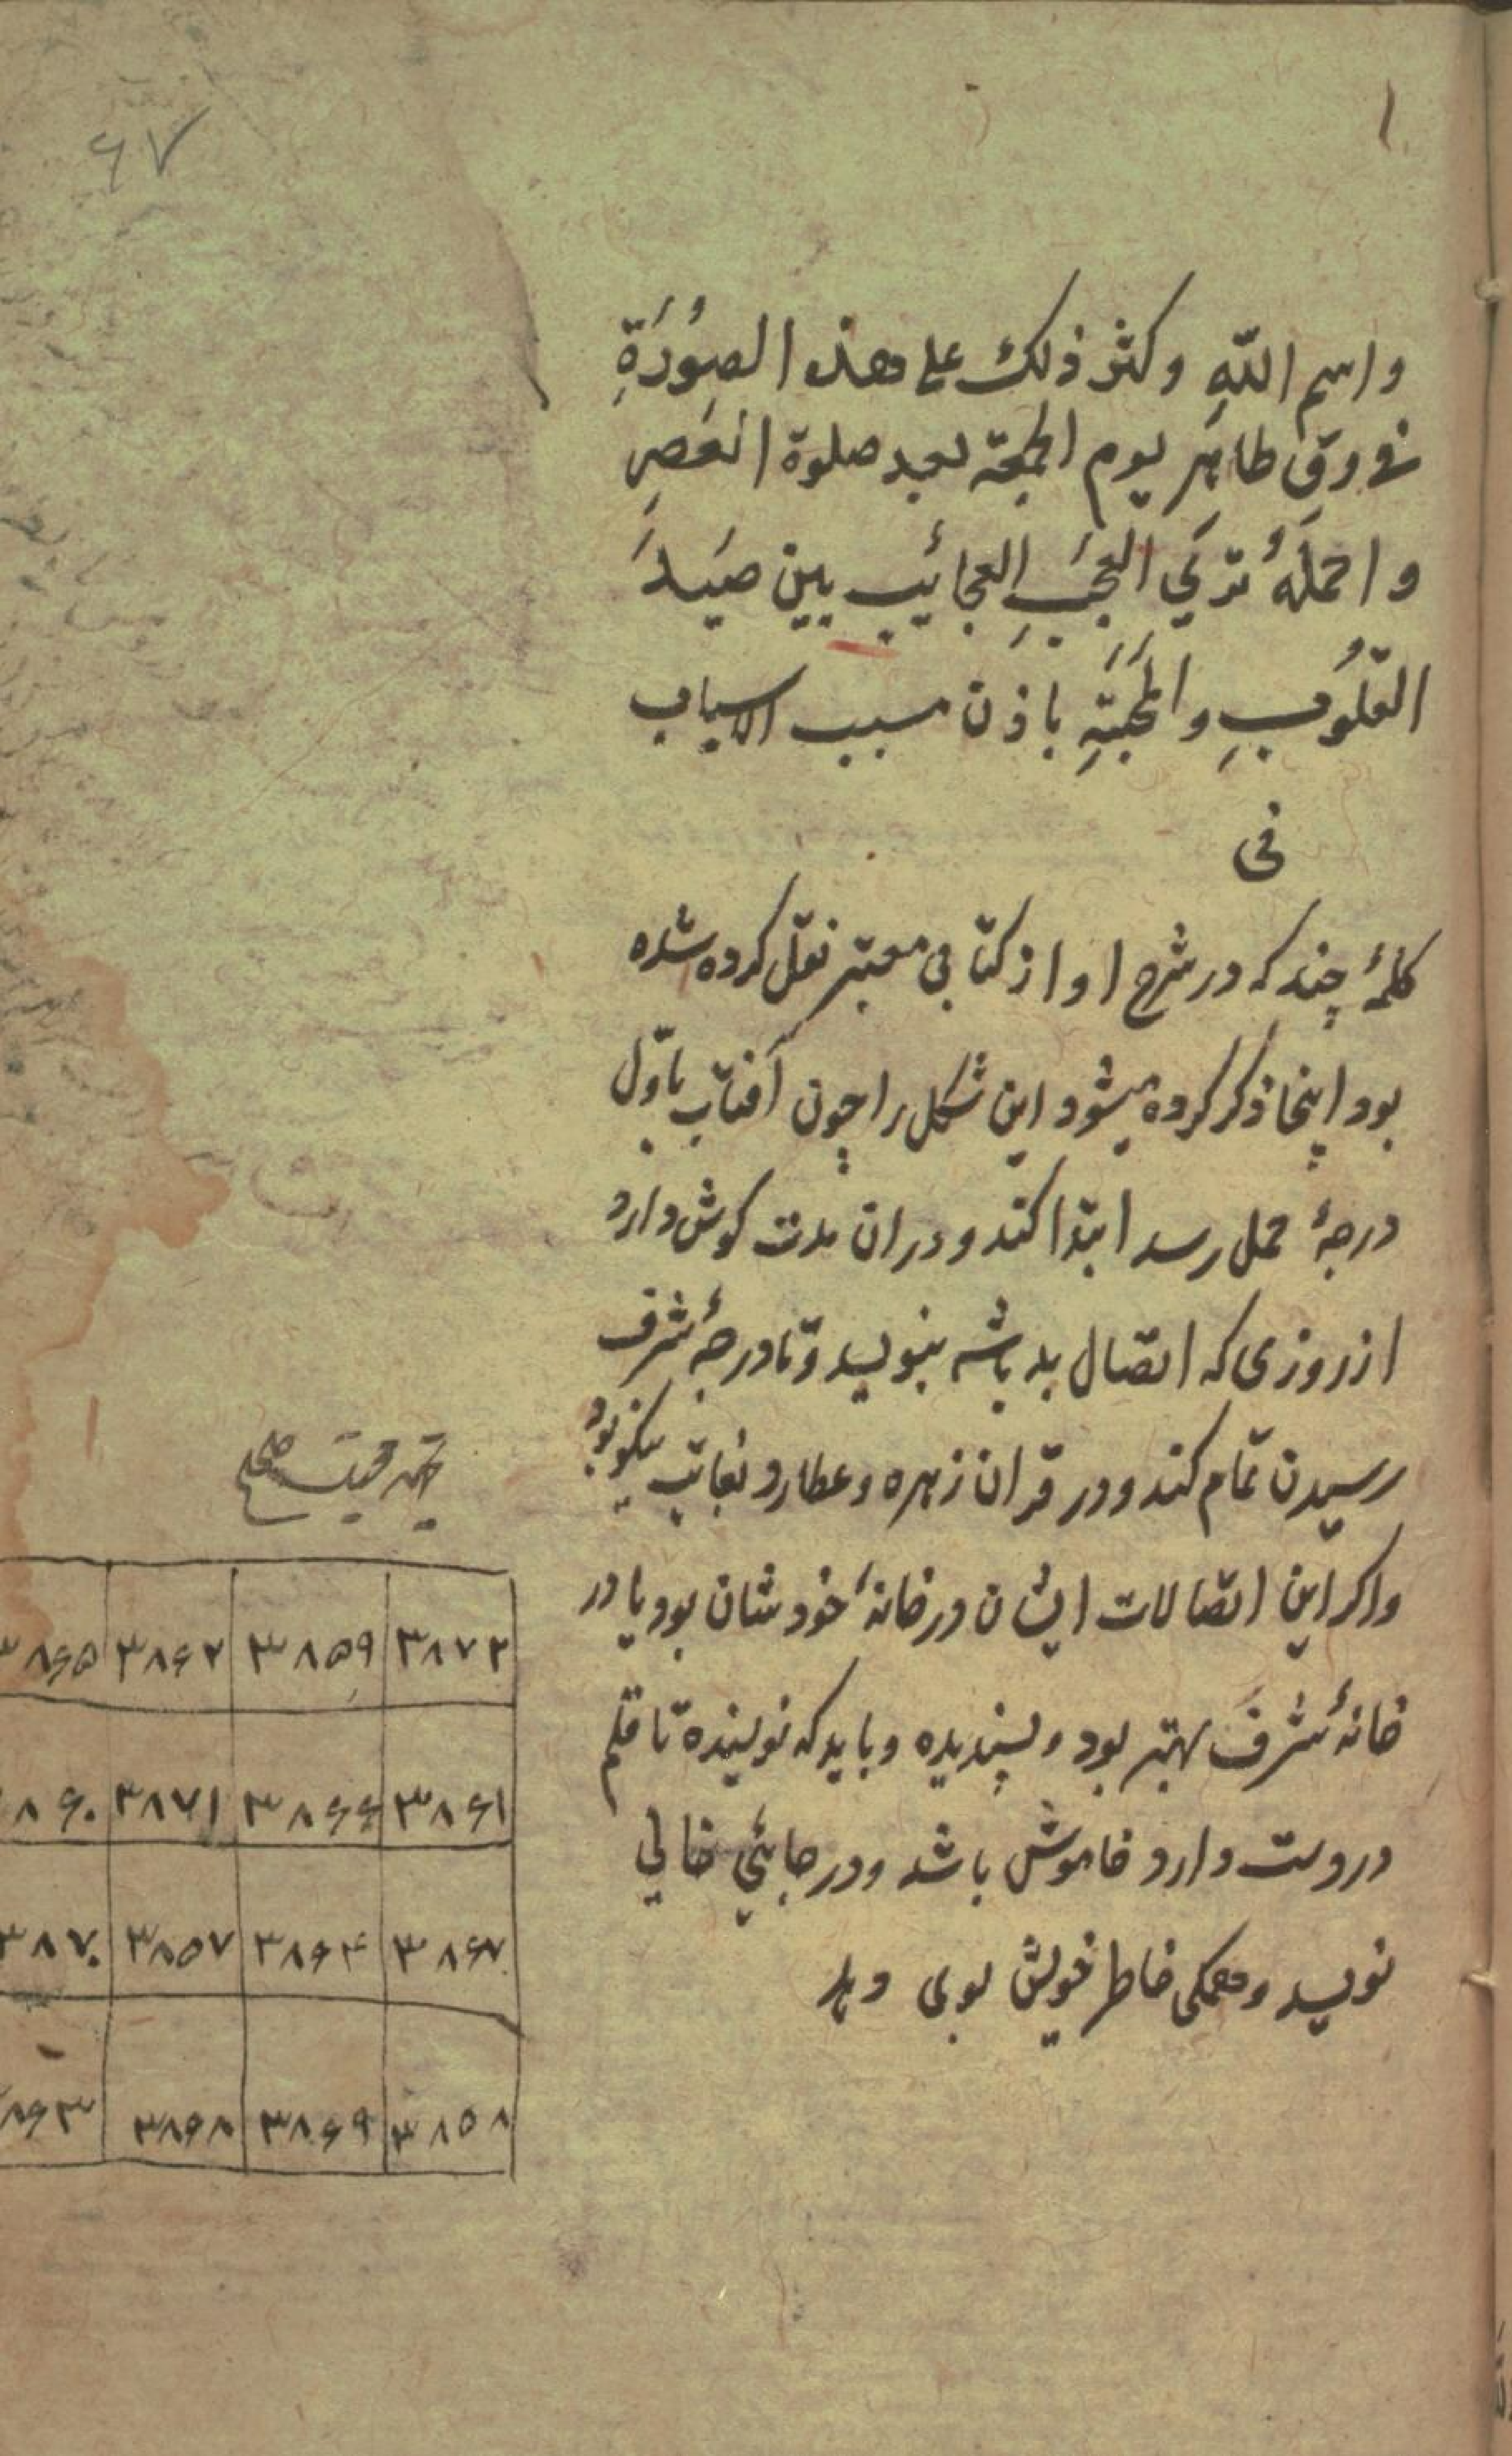 ۱
۶۷
واسم اللّهِ وكثر ذلك علی هذه الصُورَةِ
فی ورقٍ طاهر يوم الجمعة بعد صلوة العَصرِ
واحملهُ تری العجَبِ العجائب بين صَيدَ
القلُوبِ والمحَبَّةِ باذن مسبب الاسباب
فی
کلمهٔ چند که در شرح او از کتابی معتبر نقل کرده شده
بود اینجا ذکر کرده میشود این شکل را چون آفتاب باوّل
درجهٔ حمل رسد ابتدا کند و دران مدت کوش دارد
از روزی که اتصال بد باشد ننویسد و تا درجهٔ شرف
رسیدن تمام کند و در قران زهره و عطارد بغایت نیکو بود
واکر این اتصالات ایشان در خانهٔ خودشان بود یا در
خانهٔ شرف بهتر بود و پسندیده و باید که نویسنده تا قلم
در دست دارد خاموش باشد و در جائی خالی
نویسد و همکی خاطر خویش بوی دهد
۳۸۷۲ ۳۸۵۹ ۳۸۶۲ ۳۸۶۵
۳۸۶۱ ۳۸۶۶ ۳۸۷۱ ۸۶۰
۳۸۶۷ ۳۸۶۴ ۳۸۵۷ ۳۸۷۰
۳۸۵۸ ۳۸۶۹ ۳۸۶۸ ۸۶۳